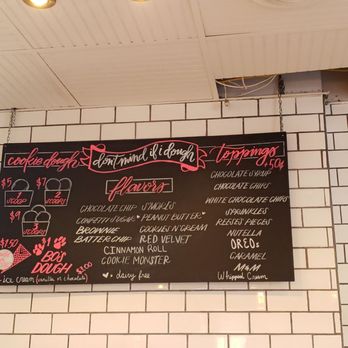 cookie dough
don't mind if i dough
toppings
.50¢
$5
1 SCOOP
$7
$9
flavors
CHOCOLATE CHIP
S'MORES
♥ PEANUT BUTTER
BROWNIE
COOKIES N CREAM
BATTER CHIP
RED VELVET
CINNAMON ROLL
COOKIE MONSTER
♥ - dairy free
CHOCOLATE SYRUP
CHOCOLATE CHIPS
WHITE CHOCOLATE CHIPS
SPRINKLES
REESE'S PIECES
NUTELLA
OREOS
CARAMEL
M&M
Whipped Cream
BO'S
DOUGH
ICE CREAM (vanilla or chocolate)